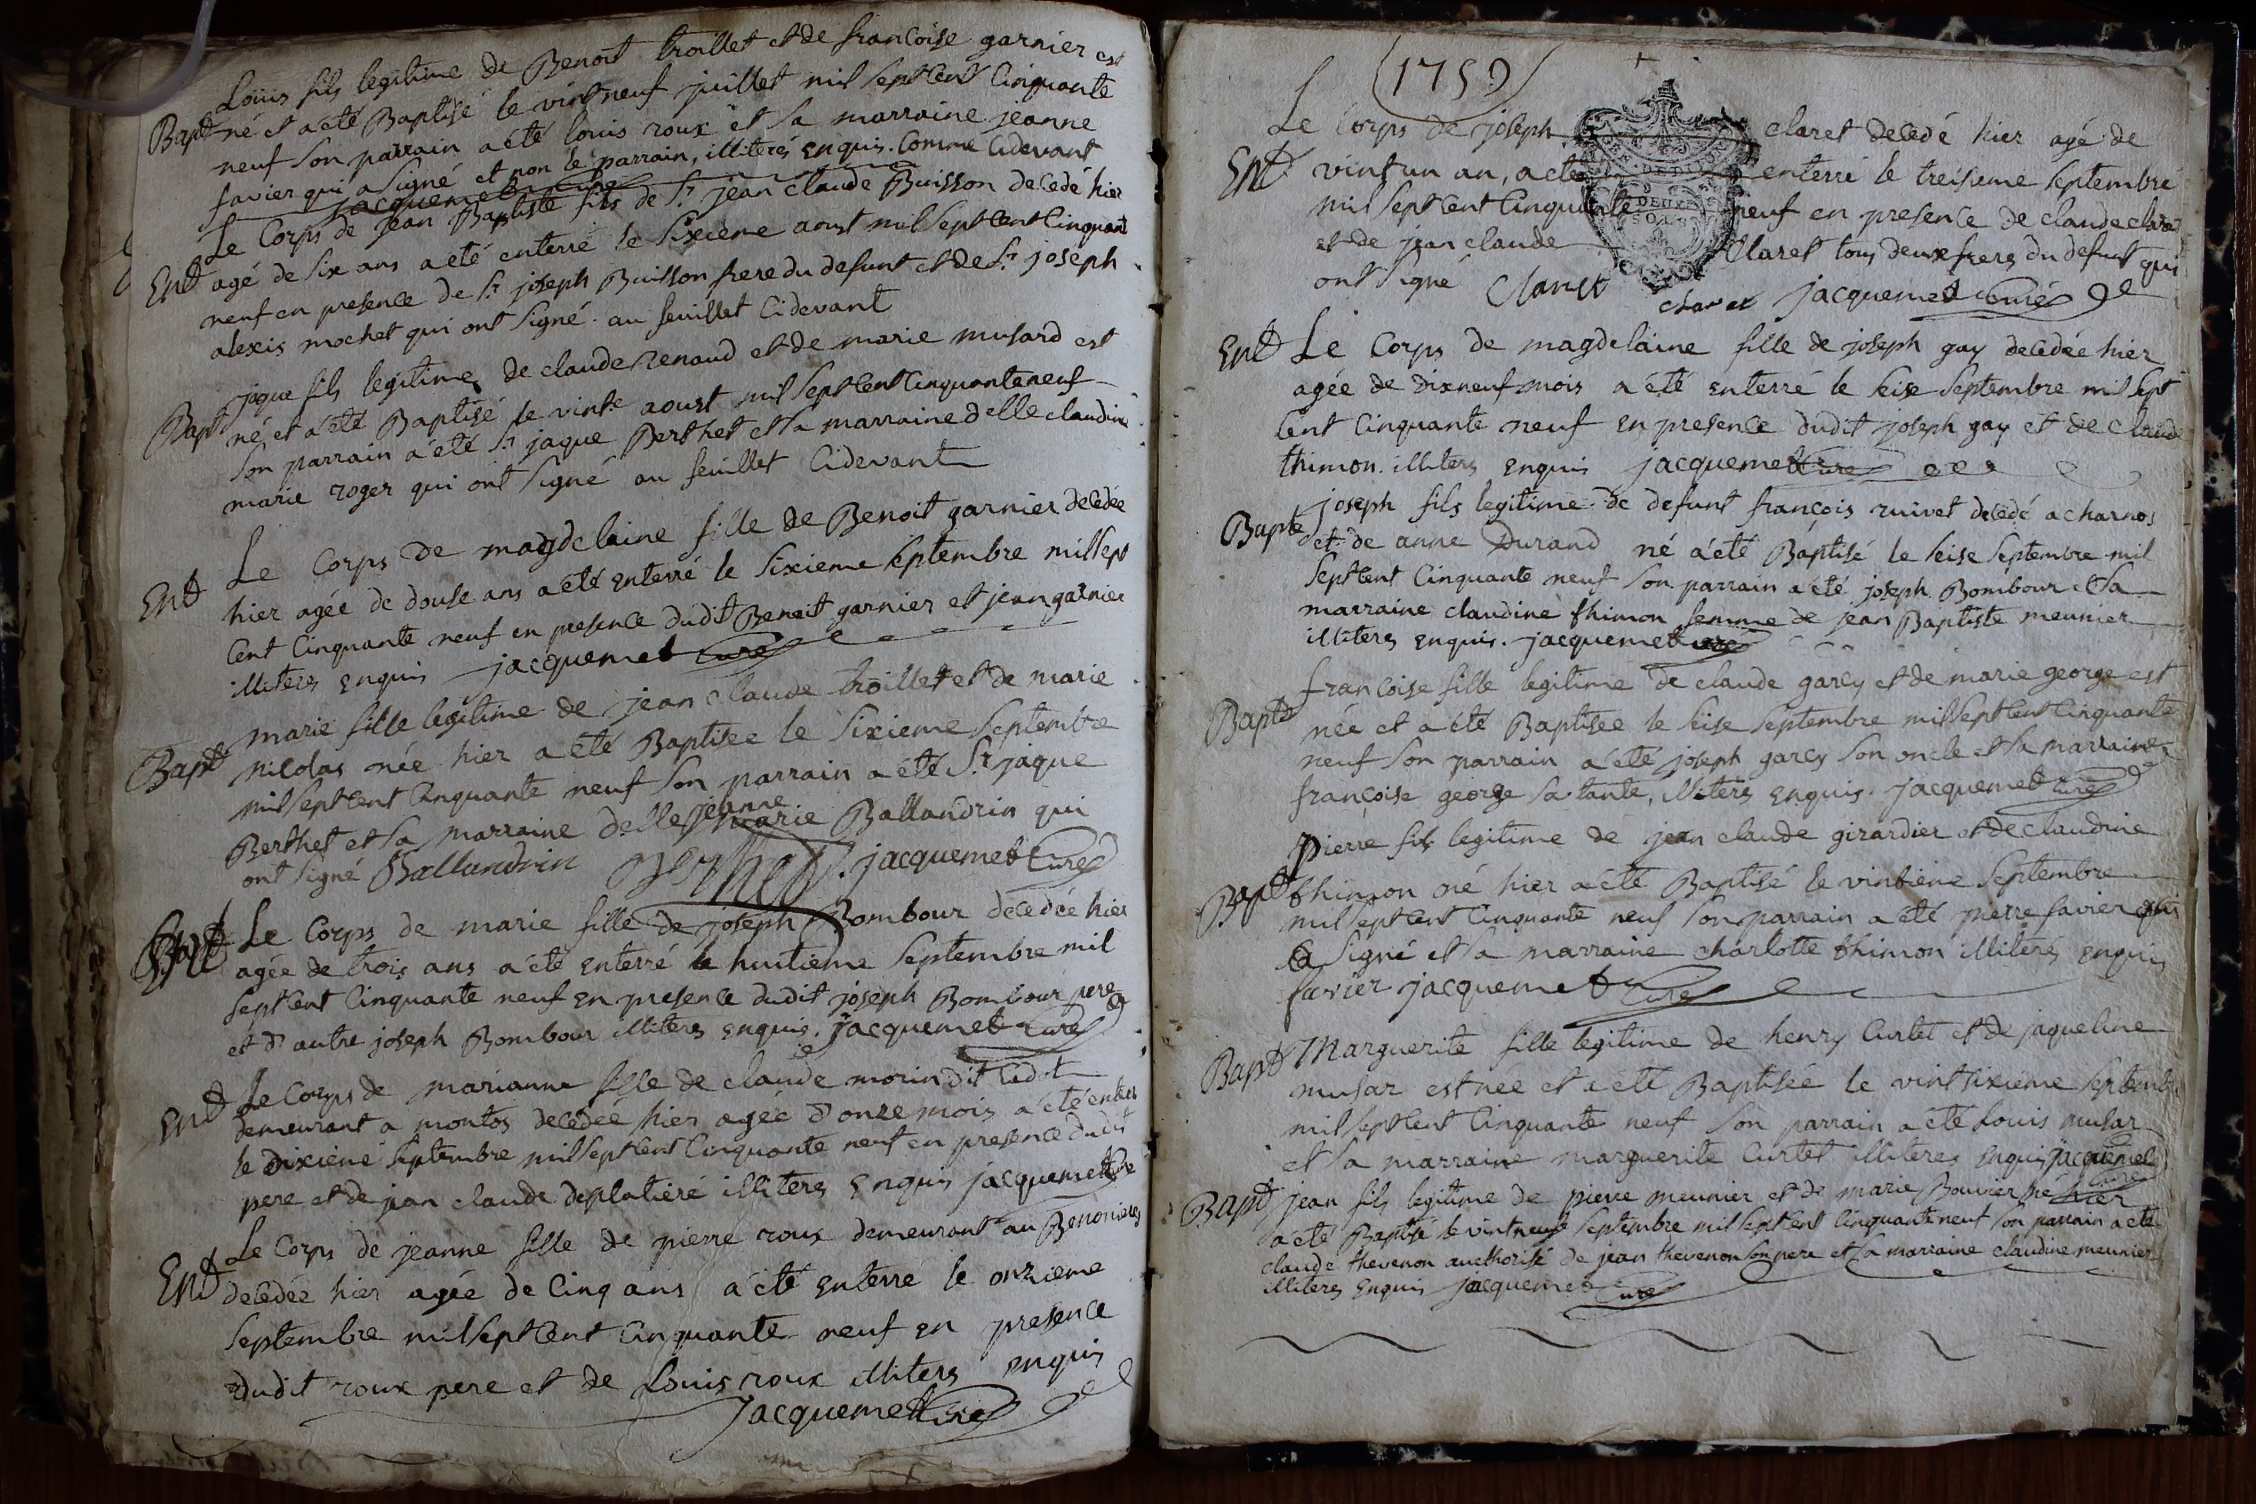 Louis fils legitime de Benoit troillet et de francoise garnier est
Bapt né et a été Baptisé le vint neuf juillet mil sept Cent Cinquante
neuf son parrain a été louis roux et sa marraine jeanne
favier qui a signé et non le parrain, illiterés enquis. Comme Cidevant
jacquemet Curé
Le Corps de jean Baptiste fils de Sr jean claude Buisson decedé hier
Entt agé de six ans a été enterré le sixieme aout mil sept Cent Cinquant
neuf en presence de Sr joseph Buisson frere du defunt et de Sr joseph
alexis mochet qui ont signé au feuillet Cidevant
jaque fils legitime de claude renaud et de marie musard est
Bapt né et a été Baptisé le vint aoust mil sept Cent Cinquante neuf
son parrain a été Sr jaque Berthet et sa marraine delle claudine
marie roger qui ont signé au feuillet Cidevant
Le Corps de magdelaine fille de Benoit garnier decedée
Entt hier agée de douse ans a été enterré le sixieme septembre mil sept
Cent Cinquante neuf en presence dudit Benoit garnier et jean garnier
illiteres enquis jacquemet Curé
marie fille legitime de jean claude troillet et de marie
Bapt nicolas née hier a été Baptisée le sixieme septembre
mil sept Cent Cinquante neuf son parrain a été Sr jaque
Berthet et sa marraine delle jeanne marie Ballandrin qui
ont signé Ballandrin Berthet jacquemet Curé
Entt Le Corps de marie fille de joseph Bombour decedée hier
agée de trois ans a été enterré le huitieme septembre mil
sept Cent Cinquante neuf en presence dudit joseph Bombour pere
et d'autre joseph Bombour illiteres enquis. jacquemet Curé
Entt Le Corps de marianne fille de claude morin dit
demeurant a montos decedée hier agée d'onze mois a été enterré
le dixieme septembre mil sept Cent Cinquante neuf en presence dudit
pere et de jean claude deplatiere illiteres enquis jacquemet Curé
Le Corps de jeanne fille de pierre roux demeurant au Benonieres
Entt decedée hier agée de Cinq ans a été enterré le onzieme
septembre mil sept Cent Cinquante neuf en presence
dudit roux pere et de Louis roux illiteres enquis
jacquemet Curé
(1759)
Le Corps de joseph claret decedé hier agé de
Entt vint un an, a été enterré le treisieme septembre
mil sept Cent Cinquante neuf en presence de claude claret
et de jean claude Claret tous deux freres du defunt qui
ont signé Claret claret jacquemet Curé
Entt Le Corps de magdelaine fille de joseph gay decedée hier
agée de dixneuf mois a été enterré le seise septembre mil sept
Cent Cinquante neuf en presence dudit joseph gay et de claude
thimon. illiteres enquis jacquemet Curé
joseph fils legitime de defunt françois ruivet decedé a charnos
Bapt et de anne Durand né a été Baptisé le seise septembre mil
sept Cent Cinquante neuf son parrain a été joseph Bombour et sa
marraine claudine thimon femme de jean Baptiste meunier
illiteres enquis. jacquemet Curé
francoise fille legitime de claude garcy et de marie george est
Bapt née et a été Baptisée le seise septembre mil sept Cent Cinquante
neuf son parrain a été joseph garcy son oncle et sa marraine
françoise george sa tante, illiteres enquis. jacquemet Curé
Pierre fils legitime de jean claude girardier et de claudine
Bapt thimon né hier a été Baptisé le vintieme septembre
mil sept Cent Cinquante neuf son parrain a été pierre favier qui
a signé et sa marraine charlotte thimon illiteres enquis
favier jacquemet Curé
Bapt Marguerite fille legitime de henry Curtet et de jaqueline
musar est née et a été Baptisée le vint sixieme septembre
mil sept Cent Cinquante neuf son parrain a été Louis musar
et sa marraine marguerite Curtet illiteres enquis jacquemet
Curé
Bapt jean fils legitime de pierre meunier et de marie Bouvier né hier
a été Baptisé le vint neuf septembre mil sept Cent Cinquante neuf son parrain a été
claude thevenon aucthorisé de jean thevenon son pere et sa marraine claudine meunier
illiteres enquis jacquemet Curé